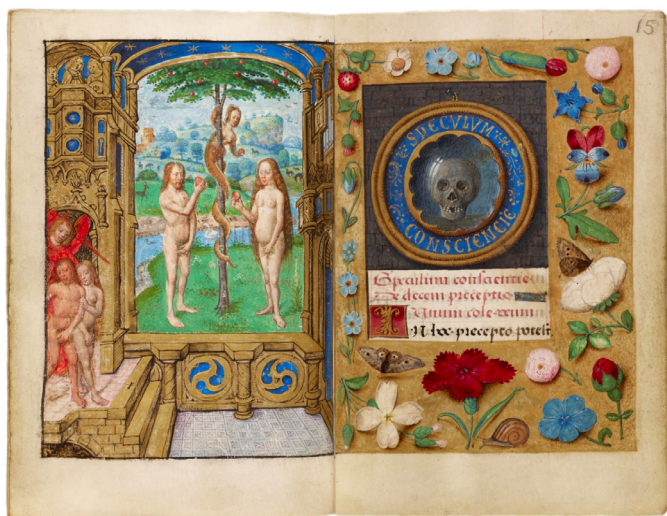 15
SPECULVM
CONSCIENCIE
Speculum consciencie
De decem preceptis
Unum cole deum
N lxx precepto potest